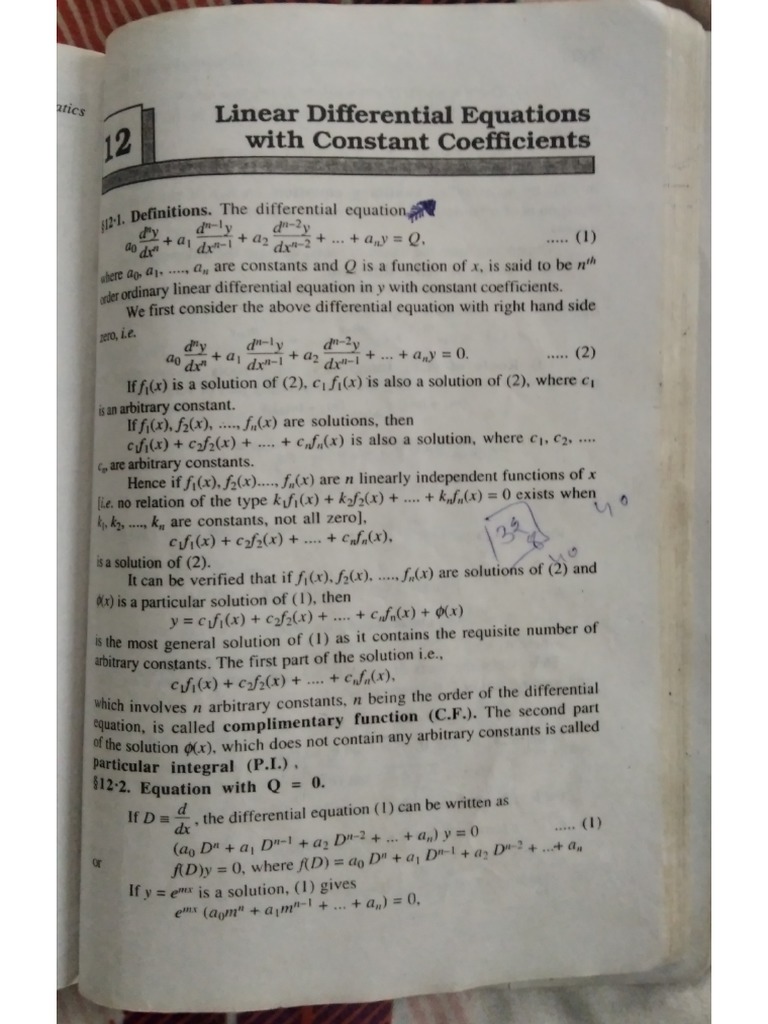 atics
12
Linear Differential Equations
with Constant Coefficients
§12·1. Definitions. The differential equation
a₀ dⁿy/dxⁿ + a₁ dⁿ⁻¹y/dxⁿ⁻¹ + a₂ dⁿ⁻²y/dxⁿ⁻² + ... + aₙy = Q, ..... (1)
where a₀, a₁, ...., aₙ are constants and Q is a function of x, is said to be nᵗʰ
order ordinary linear differential equation in y with constant coefficients.
We first consider the above differential equation with right hand side
zero, i.e.
a₀ dⁿy/dxⁿ + a₁ dⁿ⁻¹y/dxⁿ⁻¹ + a₂ dⁿ⁻²y/dxⁿ⁻¹ + ... + aₙy = 0. ..... (2)
If f₁(x) is a solution of (2), c₁ f₁(x) is also a solution of (2), where c₁
is an arbitrary constant.
If f₁(x), f₂(x), ...., fₙ(x) are solutions, then
c₁f₁(x) + c₂f₂(x) + .... + cₙfₙ(x) is also a solution, where c₁, c₂, ....
cₙ, are arbitrary constants.
Hence if f₁(x), f₂(x)...., fₙ(x) are n linearly independent functions of x
[i.e. no relation of the type k₁f₁(x) + k₂f₂(x) + .... + kₙfₙ(x) = 0 exists when
k₁, k₂, ...., kₙ are constants, not all zero],
c₁f₁(x) + c₂f₂(x) + .... + cₙfₙ(x),
is a solution of (2).
It can be verified that if f₁(x), f₂(x), ...., fₙ(x) are solutions of (2) and
ϕ(x) is a particular solution of (1), then
y = c₁f₁(x) + c₂f₂(x) + .... + cₙfₙ(x) + ϕ(x)
is the most general solution of (1) as it contains the requisite number of
arbitrary constants. The first part of the solution i.e.,
c₁f₁(x) + c₂f₂(x) + .... + cₙfₙ(x),
which involves n arbitrary constants, n being the order of the differential
equation, is called complimentary function (C.F.). The second part
of the solution ϕ(x), which does not contain any arbitrary constants is called
particular integral (P.I.) .
§12·2. Equation with Q = 0.
If D ≡ d/dx, the differential equation (1) can be written as
(a₀ Dⁿ + a₁ Dⁿ⁻¹ + a₂ Dⁿ⁻² + ... + aₙ) y = 0 ..... (1)
or f(D)y = 0, where f(D) = a₀ Dⁿ + a₁ Dⁿ⁻¹ + a₂ Dⁿ⁻² + ...+ aₙ
If y = eᵐˣ is a solution, (1) gives
eᵐˣ (a₀mⁿ + a₁mⁿ⁻¹ + ... + aₙ) = 0,